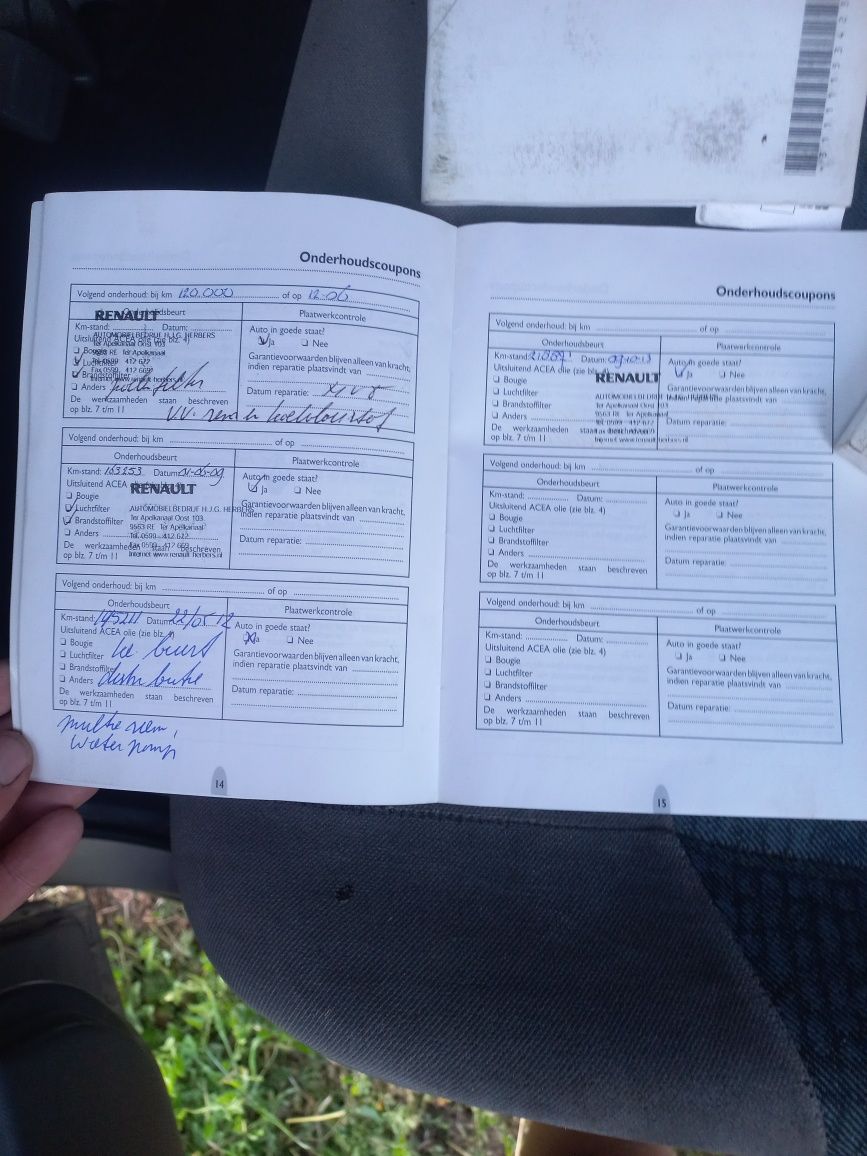 Onderhoudscoupons
Volgend onderhoud: bij km 120.000 of op 12-06
Onderhoudsbeurt
Plaatwerkcontrole
RENAULT
AUTOMOBIELBEDRIJF H.J.G. HERBERS
Ter Apelkanaal Oost 103
9563 RE Ter Apelkanaal
Tel. 0599 - 412 672
Internet www.renault-herbers.nl
Km-stand: Datum:
Uitsluitend ACEA olie (zie blz. 4)
Bougie
Luchtfilter
Brandstoffilter
Anders
De werkzaamheden staan beschreven
op blz. 7 t/m 11
Auto in goede staat?
Ja Nee
Garantievoorwaarden blijven alleen van kracht,
indien reparatie plaatsvindt van
Datum reparatie:
Volgend onderhoud: bij km of op
Onderhoudsbeurt
Plaatwerkcontrole
Km-stand: 163253 Datum:
RENAULT
Uitsluitend ACEA
Bougie
Luchtfilter
Brandstoffilter
Anders
AUTOMOBIELBEDRIJF H.J.G. HERBERS
Ter Apelkanaal Oost 103
9563 RE Ter Apelkanaal
Tel. 0599 - 412 672
Internet www.renault-herbers.nl
De werkzaamheden staan beschreven
op blz. 7 t/m 11
Auto in goede staat?
Ja Nee
Garantievoorwaarden blijven alleen van kracht,
indien reparatie plaatsvindt van
Datum reparatie:
Volgend onderhoud: bij km of op
Onderhoudsbeurt
Plaatwerkcontrole
Km-stand: Datum: 22/05 12
Uitsluitend ACEA olie (zie blz. 4)
Bougie
Luchtfilter beurt
Brandstoffilter
Anders distributie
De werkzaamheden staan beschreven
op blz. 7 t/m 11
Auto in goede staat?
Ja Nee
Garantievoorwaarden blijven alleen van kracht,
indien reparatie plaatsvindt van
Datum reparatie:
multie riem,
water pomp
14
Onderhoudscoupons
Volgend onderhoud: bij km of op
Onderhoudsbeurt
Plaatwerkcontrole
Km-stand: Datum:
Uitsluitend ACEA olie (zie blz.
RENAULT
Bougie
Luchtfilter
Brandstoffilter
Anders
De werkzaamheden
op blz. 7 t/m 11
Auto in goede staat?
Ja Nee
Garantievoorwaarden blijven alleen van kracht,
indien reparatie plaatsvindt van
Datum reparatie:
Volgend onderhoud: bij km of op
Onderhoudsbeurt
Plaatwerkcontrole
Km-stand: Datum:
Uitsluitend ACEA olie (zie blz. 4)
Bougie
Luchtfilter
Brandstoffilter
Anders
De werkzaamheden staan beschreven
op blz. 7 t/m 11
Auto in goede staat?
Ja Nee
Garantievoorwaarden blijven alleen van kracht,
indien reparatie plaatsvindt van
Datum reparatie:
Volgend onderhoud: bij km of op
Onderhoudsbeurt
Plaatwerkcontrole
Km-stand: Datum:
Uitsluitend ACEA olie (zie blz. 4)
Bougie
Luchtfilter
Brandstoffilter
Anders
De werkzaamheden staan beschreven
op blz. 7 t/m 11
Auto in goede staat?
Ja Nee
Garantievoorwaarden blijven alleen van kracht,
indien reparatie plaatsvindt van
Datum reparatie:
15